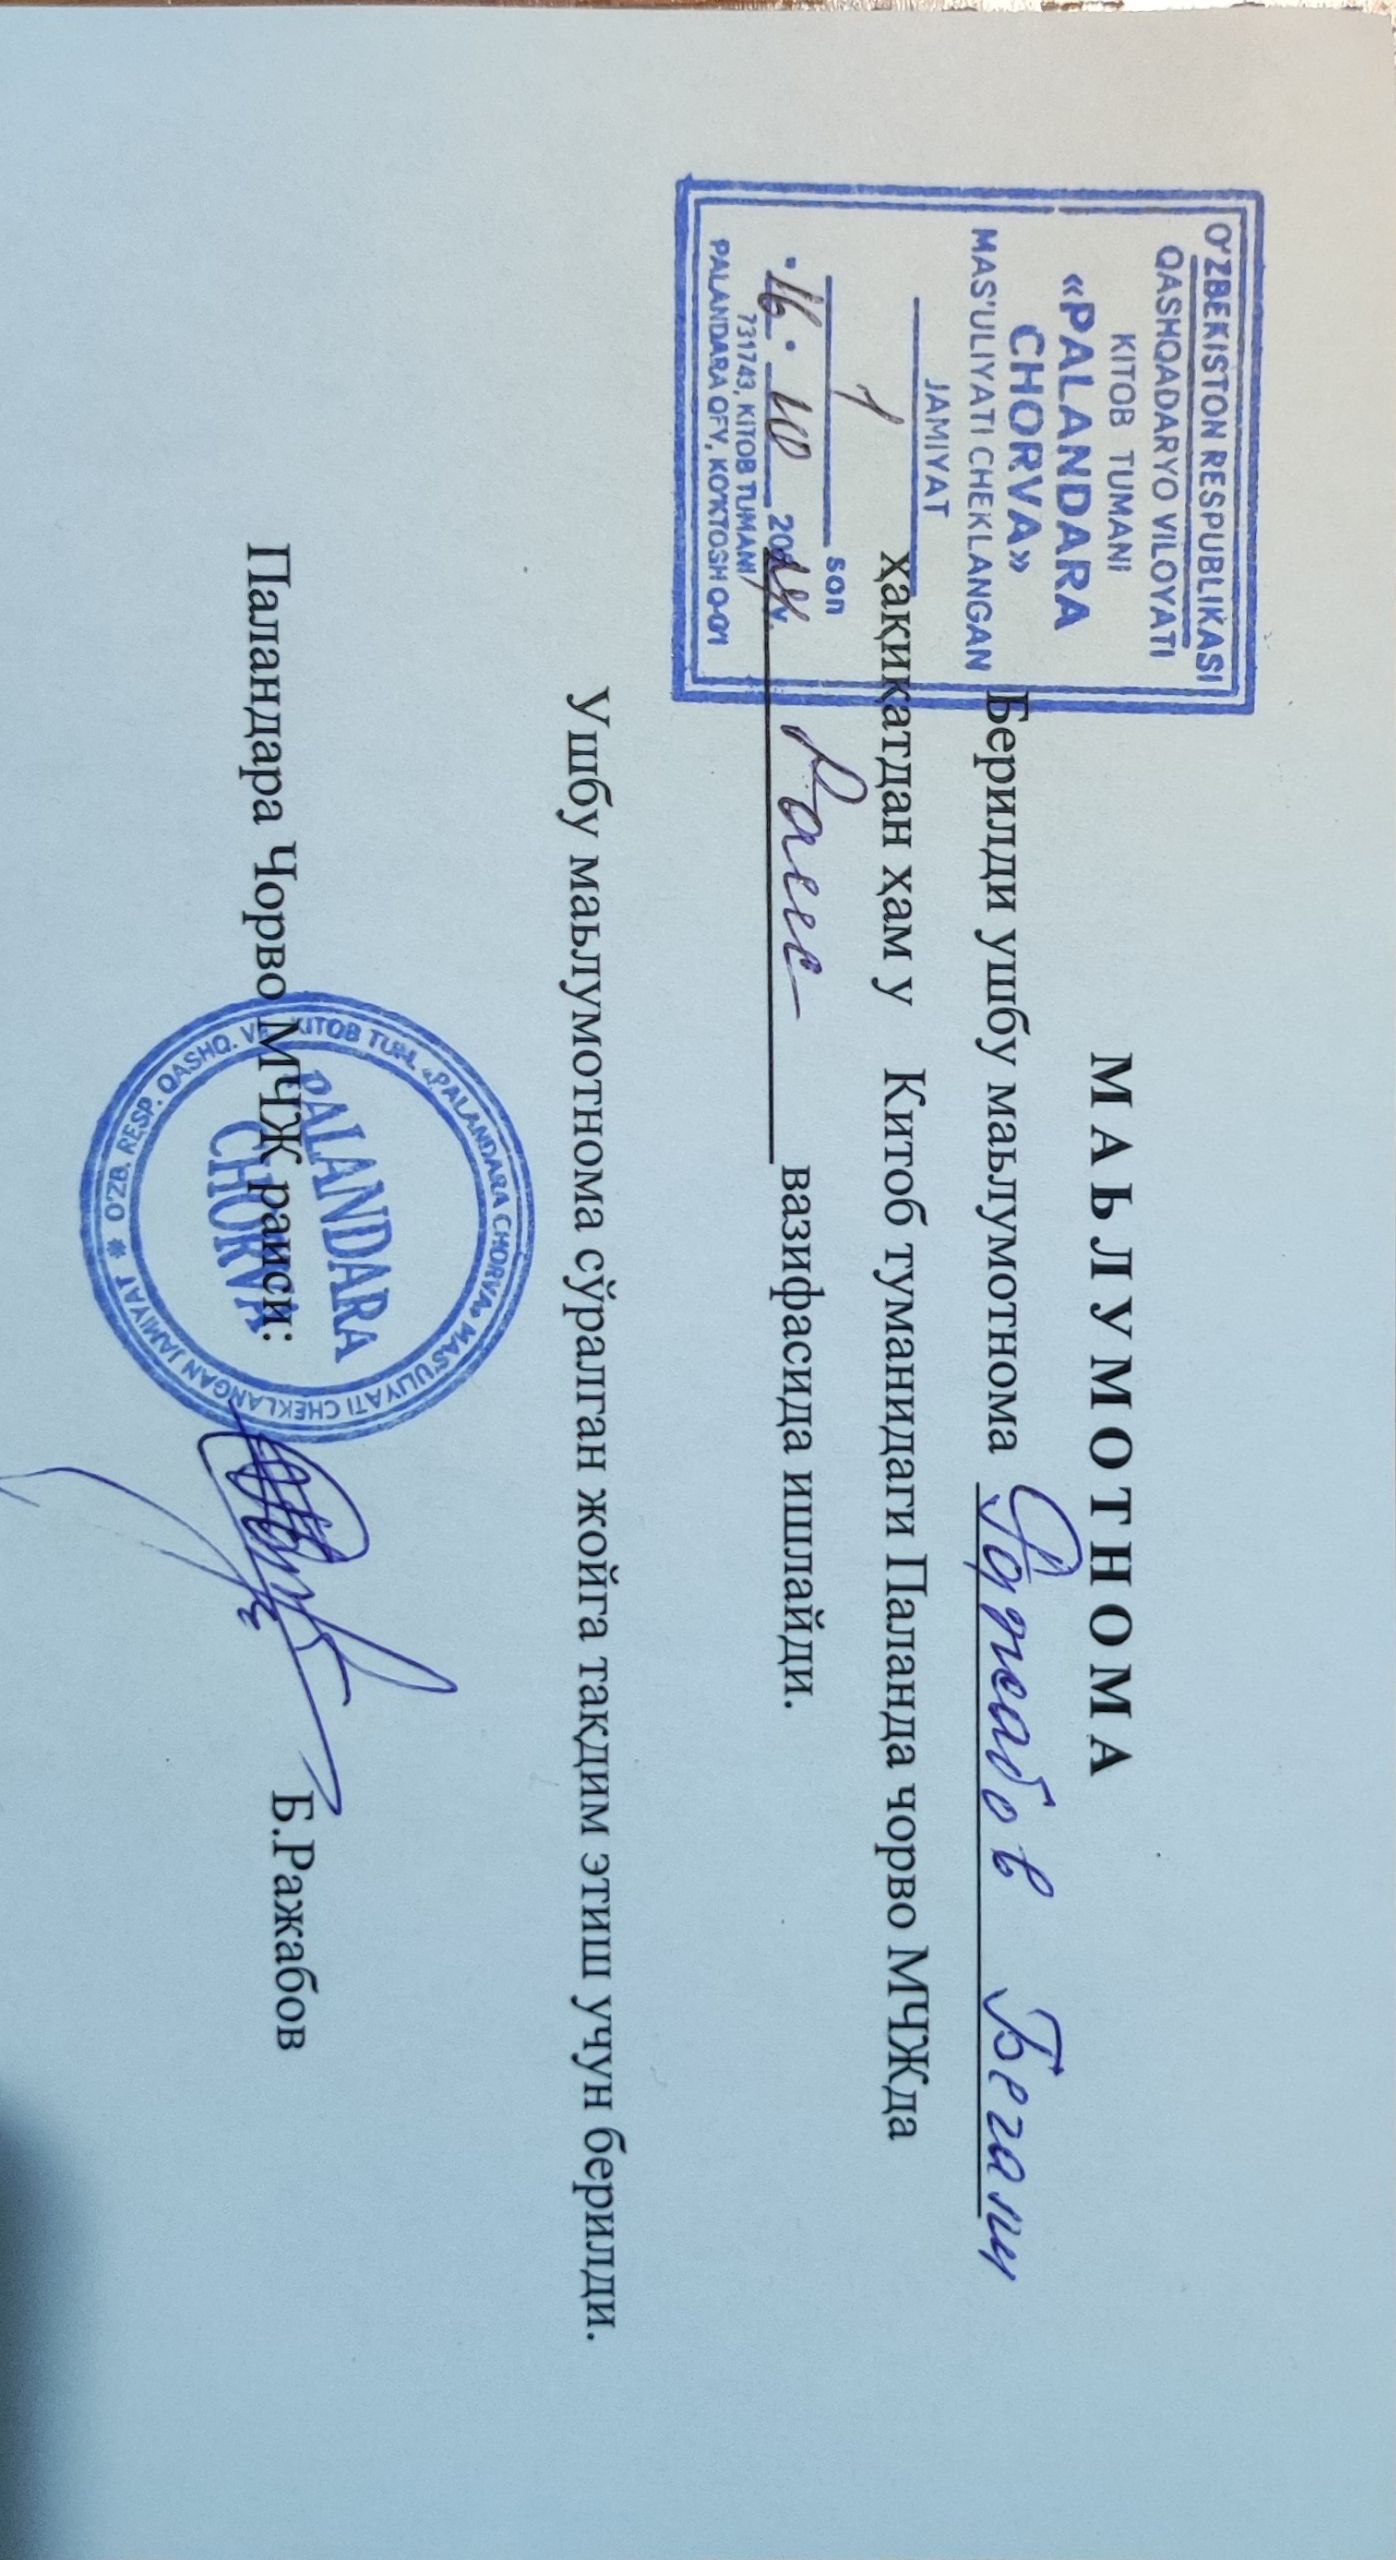 O'ZBEKISTON RESPUBLIKASI
QASHQADARYO VILOYATI
KITOB TUMANI
«PALANDARA
CHORVA»
MAS'ULIYATI CHEKLANGAN
JAMIYAT
1 son
"16" 10 2024 y.
731743, KITOB TUMANI
PALANDARA QFY, KO'KTOSH Q-G'I
МАЬЛУМОТНОМА
Берилди ушбу маьлумотнома Ражабов Бегали
ҳақиқатдан ҳам у Китоб туманидаги Паланда чорво МЧЖда
Раис вазифасида ишлайди.
Ушбу маьлумотнома сўралган жойга тақдим этиш учун берилди.
Паландара Чорво МЧЖ раиси: Б.Ражабов
O'ZB. RESP. QASHQ. V. KITOB TUM. «PALANDARA CHORVA» MAS'ULIYATI CHEKLANGAN JAMIYAT
PALANDARA
CHORVA